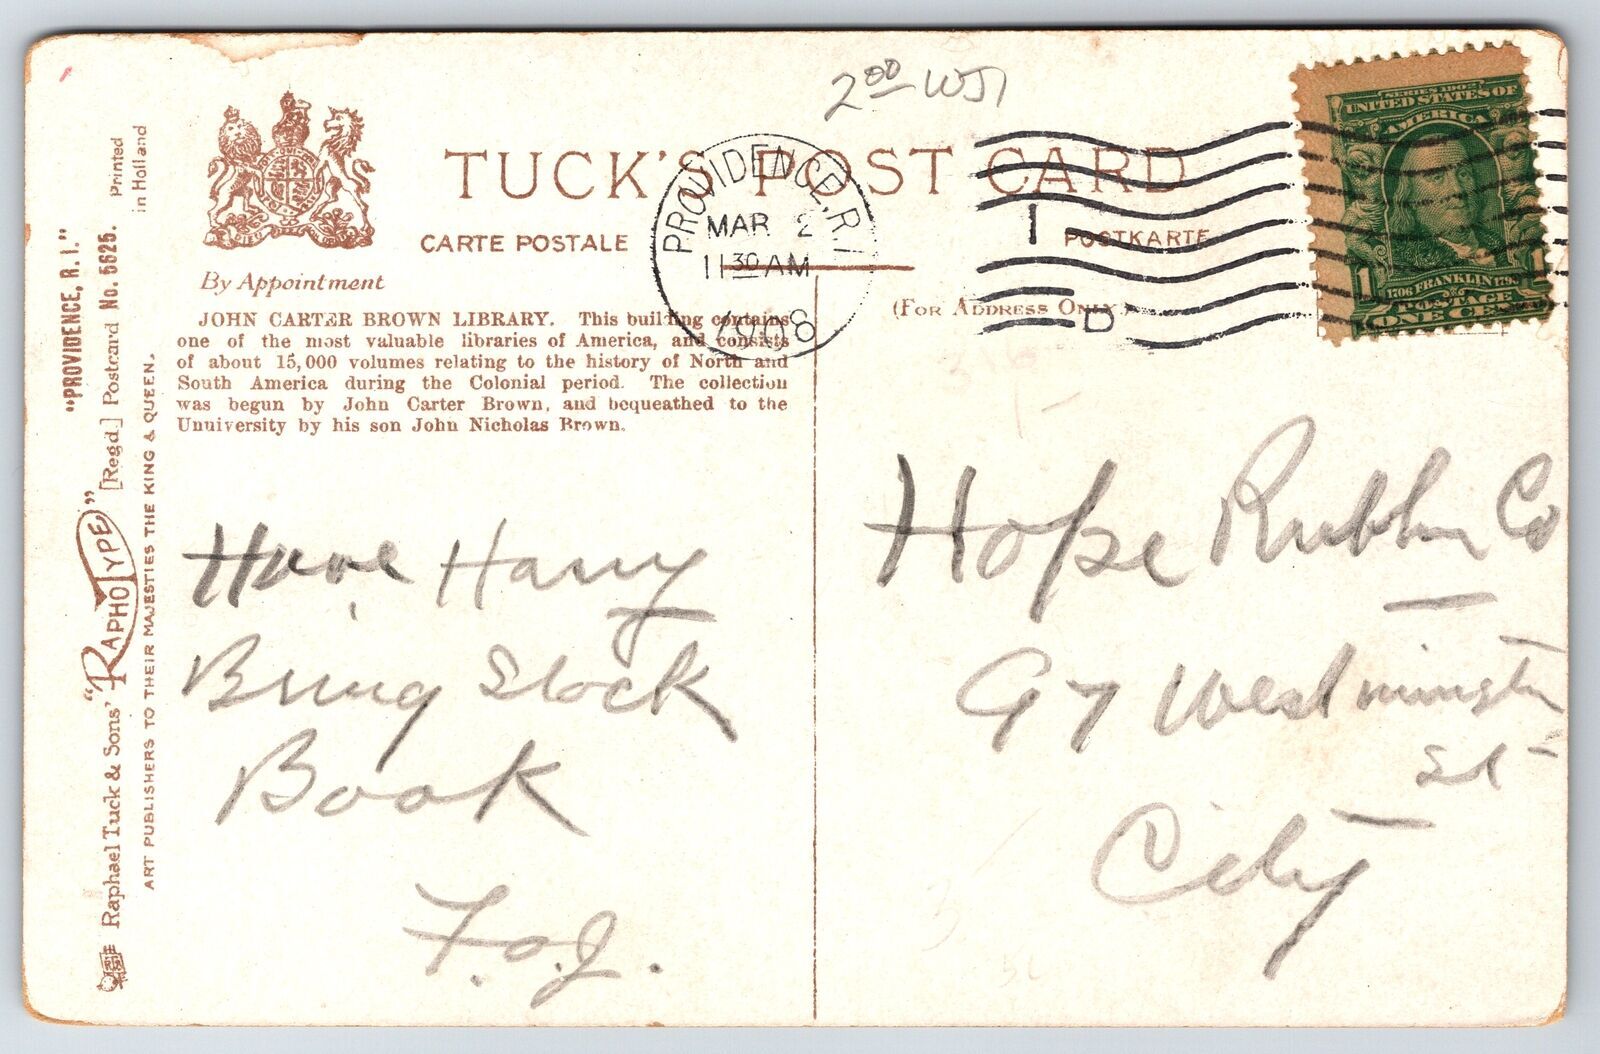 2 00 WJ
TUCK'S POST CARD
CARTE POSTALE
POSTKARTE
By Appointment
(FOR ADDRESS ONLY.)
PROVIDENCE, R.I.
MAR 2
11 30 AM
1908
1
D
SERIES 1902
UNITED STATES OF
AMERICA
1706 FRANKLIN 1790
1 POSTAGE 1
ONE CENT
JOHN CARTER BROWN LIBRARY. This building contains
one of the most valuable libraries of America, and consists
of about 15,000 volumes relating to the history of North and
South America during the Colonial period. The collection
was begun by John Carter Brown, and bequeathed to the
Unuiversity by his son John Nicholas Brown.
"PROVIDENCE, R. I."
Raphael Tuck & Sons' "RAPHOTYPE" [Regd.] Postcard No. 5625.
Printed
in Holland
ART PUBLISHERS TO THEIR MAJESTIES THE KING & QUEEN.
Have Harry
Bring Stock
Book
F.O.J.
Hope Rubber Co
97 Westminster
St
City